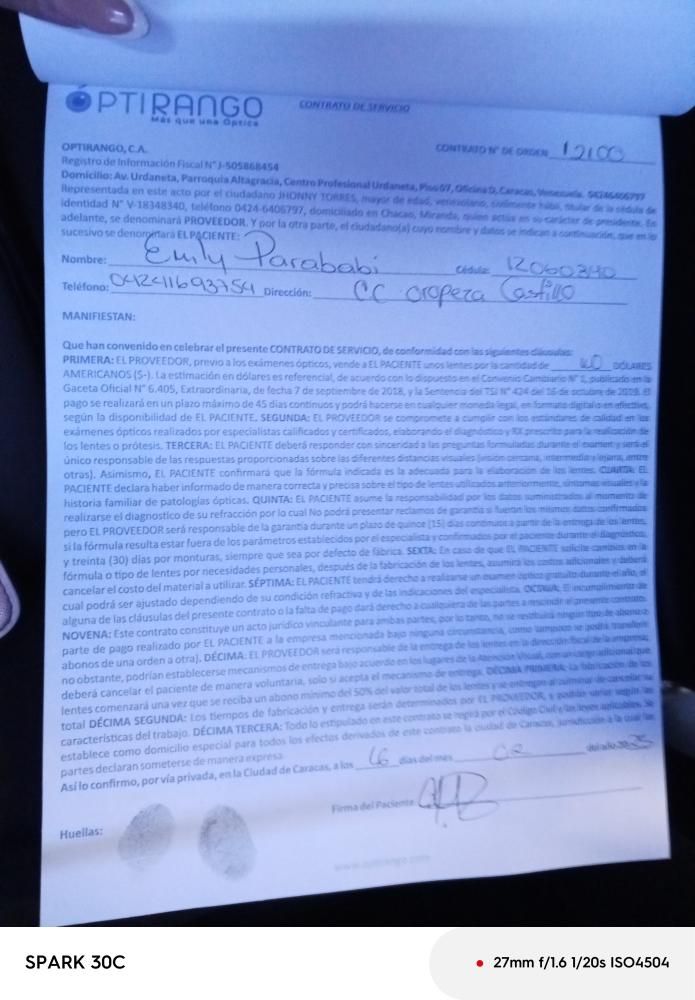 ÓPTIRANGO
Más que una Óptica
CONTRATO DE SERVICIO
OPTIRANGO, C.A.
CONTRATO N° DE ORDEN 12100
Registro de Información Fiscal N° J-505868454
Domicilio: Av. Urdaneta, Parroquia Altagracia, Centro Profesional Urdaneta, Piso 07, Oficina D, Caracas, Venezuela. 04246406797
Representada en este acto por el ciudadano JHONNY TORRES, mayor de edad, venezolano, civilmente hábil, titular de la cédula de
identidad N° V-18348340, teléfono 0424-6406797, domiciliado en Chacao, Miranda, quien actúa en su carácter de presidente. En
adelante, se denominará PROVEEDOR. Y por la otra parte, el ciudadano(a) cuyo nombre y datos se indican a continuación, que en lo
sucesivo se denominará EL PACIENTE:
Nombre: Emily Parababi Cédula: 12060340
Teléfono: 04241693754 Dirección: CC oropeza Castillo
MANIFIESTAN:
Que han convenido en celebrar el presente CONTRATO DE SERVICIO, de conformidad con las siguientes cláusulas:
PRIMERA: EL PROVEEDOR, previo a los exámenes ópticos, vende a EL PACIENTE unos lentes por la cantidad de DÓLARES
AMERICANOS ($-). La estimación en dólares es referencial, de acuerdo con lo dispuesto en el Convenio Cambiario N° 1, publicado en la
Gaceta Oficial N° 6.405, Extraordinaria, de fecha 7 de septiembre de 2018, y la Sentencia del TSJ N° 424 del 16 de octubre de 2019. El
pago se realizará en un plazo máximo de 45 días continuos y podrá hacerse en cualquier moneda legal, en formato digital o en efectivo,
según la disponibilidad de EL PACIENTE. SEGUNDA: EL PROVEEDOR se compromete a cumplir con los estándares de calidad en los
exámenes ópticos realizados por especialistas calificados y certificados, elaborando el diagnóstico y RX prescrito para la realización de
los lentes o prótesis. TERCERA: EL PACIENTE deberá responder con sinceridad a las preguntas formuladas durante el examen y será el
único responsable de las respuestas proporcionadas sobre las diferentes distancias visuales (visión cercana, intermedia y lejana, entre
otras). Asimismo, EL PACIENTE confirmará que la fórmula indicada es la adecuada para la elaboración de los lentes. CUARTA: EL
PACIENTE declara haber informado de manera correcta y precisa sobre el tipo de lentes utilizados anteriormente, síntomas visuales y la
historia familiar de patologías ópticas. QUINTA: EL PACIENTE asume la responsabilidad por los datos suministrados al momento de
realizarse el diagnostico de su refracción por lo cual No podrá presentar reclamos de garantía si fueran los mismos datos confirmados
pero EL PROVEEDOR será responsable de la garantía durante un plazo de quince (15) días continuos a partir de la entrega de los lentes,
si la fórmula resulta estar fuera de los parámetros establecidos por el especialista y confirmados por el paciente durante el diagnóstico,
y treinta (30) días por monturas, siempre que sea por defecto de fábrica. SEXTA: En caso de que EL PACIENTE solicite cambios en la
fórmula o tipo de lentes por necesidades personales, después de la fabricación de los lentes, asumirá los costos adicionales y deberá
cancelar el costo del material a utilizar. SÉPTIMA: EL PACIENTE tendrá derecho a realizarse un examen óptico gratuito durante el año, el
cual podrá ser ajustado dependiendo de su condición refractiva y de las indicaciones del especialista. OCTAVA: El incumplimiento de
alguna de las cláusulas del presente contrato o la falta de pago dará derecho a cualquiera de las partes a rescindir el presente contrato.
NOVENA: Este contrato constituye un acto jurídico vinculante para ambas partes, por lo tanto, no se restituirá ningún tipo de abono o
parte de pago realizado por EL PACIENTE a la empresa mencionada bajo ninguna circunstancia, como tampoco se podrá transferir
abonos de una orden a otra). DÉCIMA: EL PROVEEDOR será responsable de la entrega de los lentes en la dirección fiscal de la empresa;
no obstante, podrían establecerse mecanismos de entrega bajo acuerdo en los lugares de la Atención Visual, con un cargo adicional que
deberá cancelar el paciente de manera voluntaria, solo si acepta el mecanismo de entrega. DÉCIMA PRIMERA: La fabricación de los
lentes comenzará una vez que se reciba un abono mínimo del 50% del valor total de los lentes y se entregan al culminar de cancelar su
total DÉCIMA SEGUNDA: Los tiempos de fabricación y entrega serán determinados por EL PROVEEDOR, y podrán variar según las
características del trabajo. DÉCIMA TERCERA: Todo lo estipulado en este contrato se regirá por el Código Civil y las leyes aplicables. Se
establece como domicilio especial para todos los efectos derivados de este contrato la ciudad de Caracas, jurisdicción a la cual las
partes declaran someterse de manera expresa.
Así lo confirmo, por vía privada, en la Ciudad de Caracas, a los 16 días del mes 02 del año 2025
Firma del Paciente
Huellas:
www.optirango.com
SPARK 30C
27mm f/1.6 1/20s ISO4504